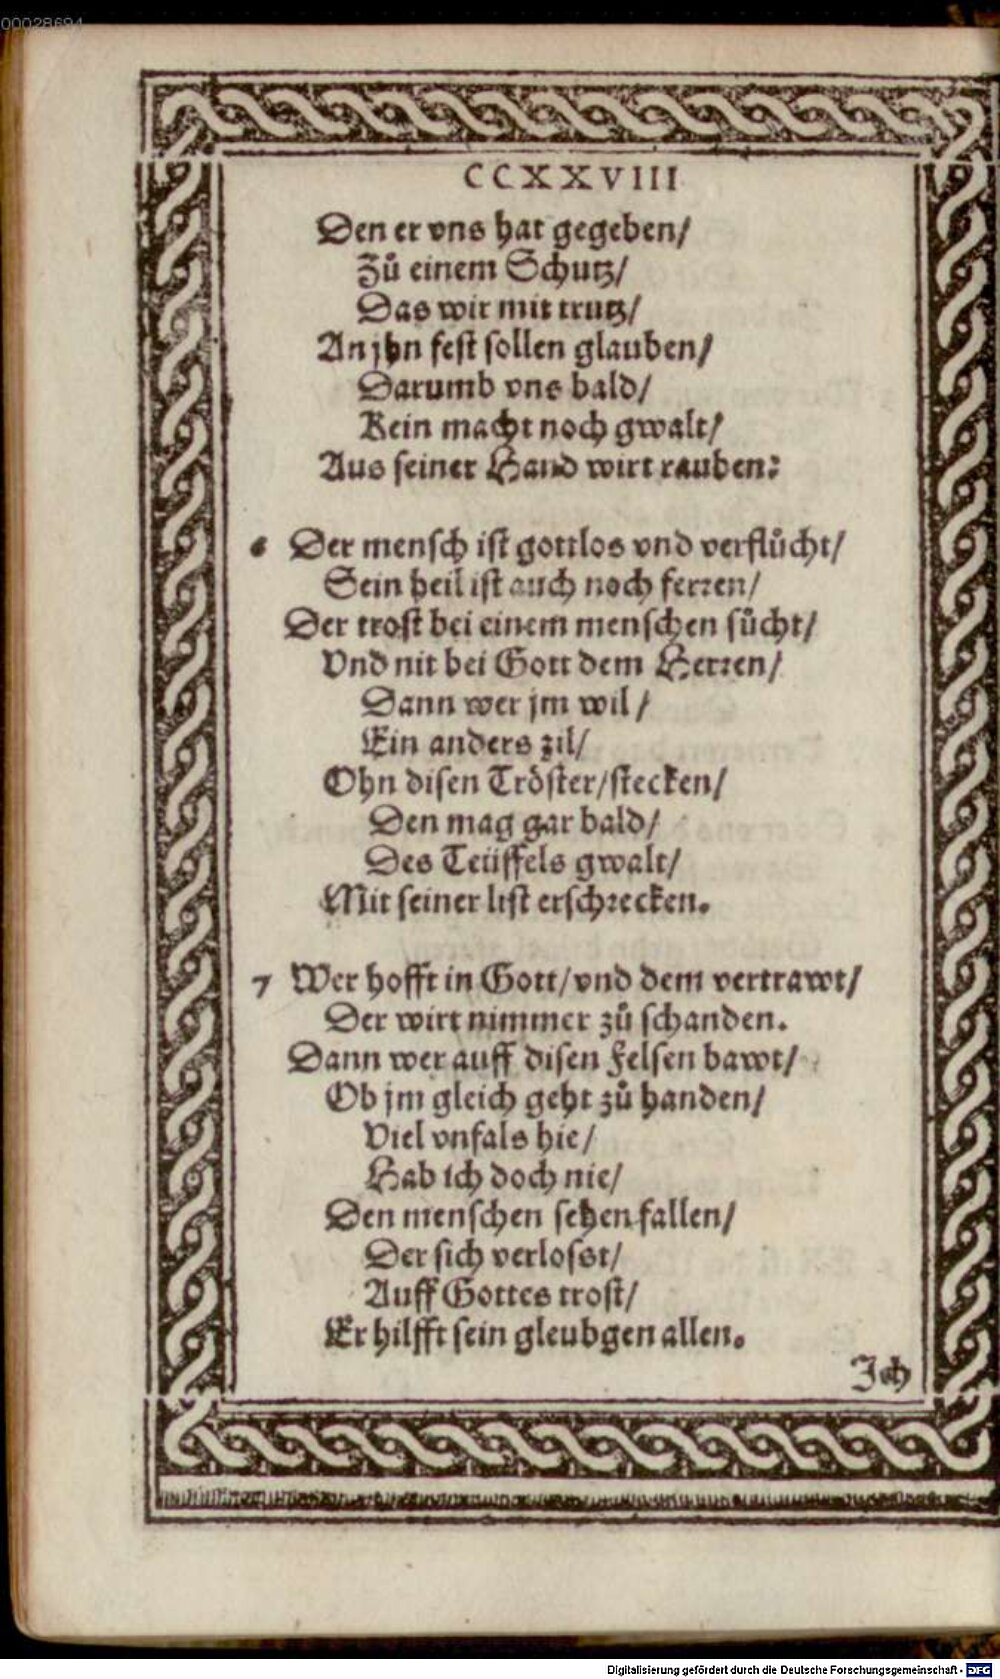 00028694
CCXXVIII
Den er vns hat gegeben/
Zů einem Schutz/
Das wir mit trutz/
An jhn fest sollen glauben/
Darumb vns bald/
Kein macht noch gwalt/
Aus seiner Hand wirt rauben:
6 Der mensch ist gottlos vnd verflůcht/
Sein heil ist auch noch ferren/
Der trost bei einem menschen sůcht/
Vnd nit bei Gott dem Herren/
Dann wer jm wil/
Ein anders zil/
Ohn disen Tröster/stecken/
Den mag gar bald/
Des Teüffels gwalt/
Mit seiner list erschrecken.
7 Wer hofft in Gott/vnd dem vertrawt/
Der wirt nimmer zů schanden.
Dann wer auff disen Felsen bawt/
Ob jm gleich geht zů handen/
Viel vnfals hie/
Hab ich doch nie/
Den menschen sehen fallen/
Der sich verlosst/
Auff Gottes trost/
Er hilfft sein gleubgen allen.
Ich
Digitalisierung gefördert durch die Deutsche Forschungsgemeinschaft - DFG